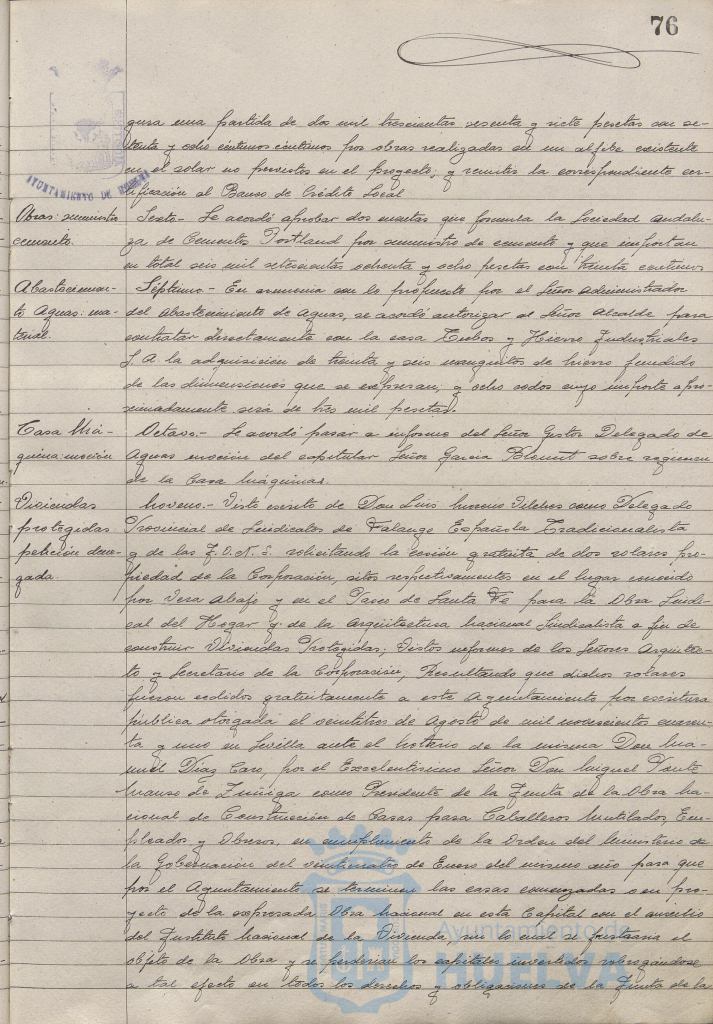 76
AYUNTAMIENTO DE HUELVA
gura una partida de dos mil trescientas sesenta y siete pesetas con se-
tenta y ocho centimos centimos por obras realizadas en un aljibe existente
en el solar no previstos en el proyecto; y remitir la correspondiente cer-
tificación al Banco de Crédito Local
Obras: suministro
cemento.
Sexto.- Se acordó aprobar dos cuentas que formula la Sociedad Andalu-
za de Cementos Portland por suministro de cemento y que importan
en total seis mil setecientas ochenta y ocho pesetas con treinta centimos
Abastecimien-
to Aguas: ma-
terial.
Séptimo.- En armonia con lo propuesto por el Señor Administrador
del Abastecimiento de Aguas, se acordó autorizar al Señor Alcalde para
contratar directamente con la casa Tubos y Hierro Industriales
S. A. la adquisición de treinta y seis manguitos de hierro fundido
de las dimensiones que se expresan, y ocho codos cuyo importe apro-
ximadamente será de tres mil pesetas.
Casa Má-
quina: moción
Octavo.- Se acordó pasar a informe del Señor Gestor Delegado de
Aguas moción del capitular Señor Garcia sobre regimen
de la Casa Máquinas.
Viviendas
protegidas
petición dene-
gada.
Noveno.- Visto escrito de Don Luis Moreno como Delegado
Provincial de Sindicatos de Falange Española Tradicionalista
y de las J.O.N.S. solicitando la cesión gratuita de dos solares pro-
piedad de la Corporación, sitos respectivamente en el lugar conocido
por Vera Abajo y en el Paseo de Santa Fe para la Obra Sindi-
cal del Hogar y de la Arquitectura Nacional Sindicalista a fin de
construir Viviendas Protegidas; Vistos informes de los Señores Arquitec-
to y Secretario de la Corporación, Resultando que dichos solares
fueron cedidos gratuitamente a este Ayuntamiento por escritura
publica otorgada el veintitres de Agosto de mil novecientos cuaren-
ta y uno en Sevilla ante el Notario de la misma Don Ma-
nuel Diaz Caro, por el Excelentisimo Señor Don Miguel Ponte
Manso de Zuñiga como Presidente de la Junta de la Obra Na-
cional de Construcción de Casas para Caballeros Mutilados, Em-
pleados y Obreros, en cumplimento de la Orden del Ministerio de
la Gobernación del veinticuatro de Enero del mismo año para que
por el Ayuntamiento se terminen las casas comenzadas o en pro-
yecto de la expresada Obra Nacional en esta Capital con el auxilio
del Instituto Nacional de la Vivienda, sin lo cual se frustraria el
objeto de la Obra y se perderian los capitales invertidos subrogándose
a tal efecto en todos los derechos y obligaciones de la Junta de la
Ayuntamiento de
HUELVA